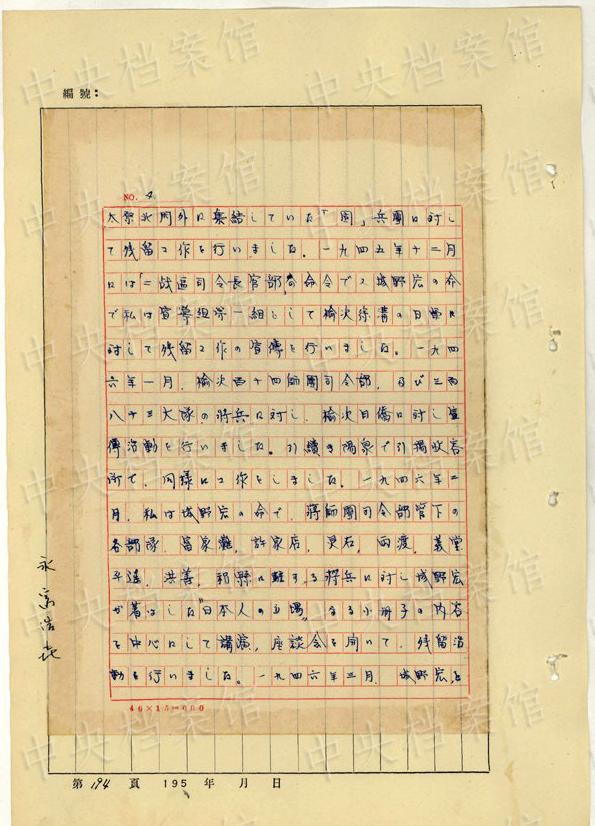 編號：
NO. 4
太原北門外に集結していた「固」兵團に対し
て残留工作を行いました。一九四五年十二月
には「二战區司令長官部」の命令で、城野宏の命
で私は宣導組第一組として榆次徐溝の日軍に
対して残留工作の宣傳を行いました。一九四
六年一月、榆次百十四師團司令部、及び三百
八十三大隊の将兵に対し、榆次日僑に対し宣
傳活動を行いました。引續き陽泉で引揚收容
所で、同様に工作をしました。一九四六年二
月、私は城野宏の命で、師團司令部管下の
各部隊、富家灘、許家店、灵石、両渡、義堂
平遥、洪善、祁縣に駐する将兵に対し城野宏
が著はした"日本人の立場"なる小册子の内容
を中心にして講演、座談会を開いて、残留活
動を行いました。一九四六年三月、城野宏と
40×15=600
永富浩喜
第194頁 195 年 月 日
中央档案馆